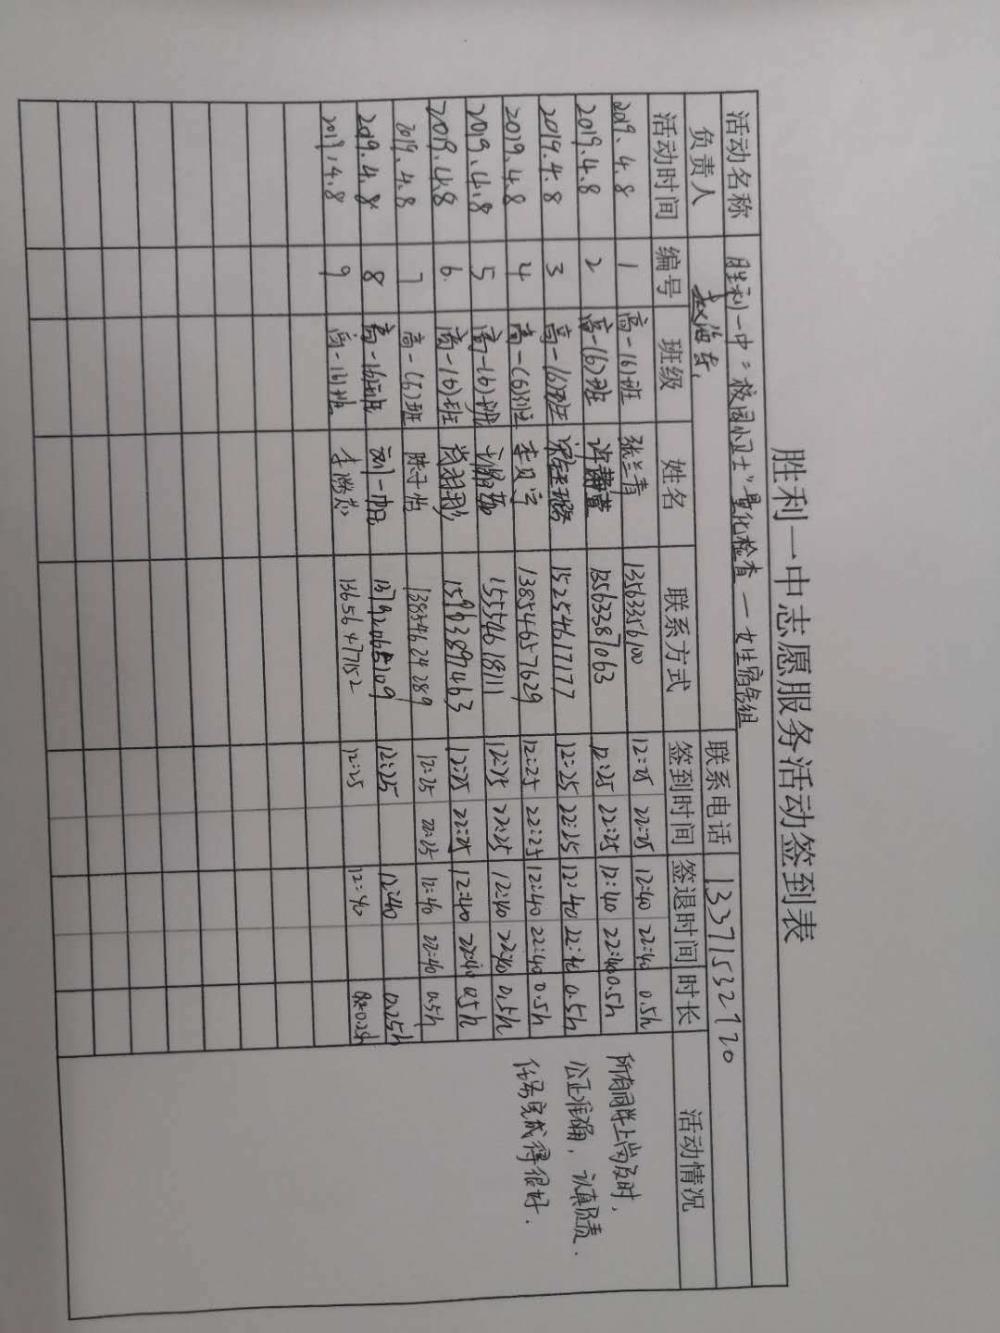 胜利一中志愿服务活动签到表
活动名称 胜利一中"校园小卫士"量化检查——女生宿舍组
负责人 赵海东 联系电话 13371532720
活动时间 编号 班级 姓名 联系方式 签到时间 签退时间 时长 活动情况
2019.4.8 1 高一(6)班 张兰青 13563356100 12:25 22:25 12:40 22:40 0.5h
2019.4.8 2 高一(6)班 13563387063 12:25 22:25 12:40 22:40 0.5h
2019.4.8 3 高一(6)班 15254617177 12:25 22:25 12:40 22:40 0.5h
2019.4.8 4 高一(6)班 李贝宁 13854657629 12:25 22:25 12:40 22:40 0.5h
2019.4.8 5 高一(6)班 15554618111 12:25 22:25 12:40 22:40 0.5h
2019.4.8 6 高一(6)班 15963897463 12:25 22:25 12:40 22:40 0.5h
2019.4.8 7 高一(6)班 陈子怡 13854624289 12:25 22:25 12:40 22:40 0.5h
2019.4.8 8 高一(6)班 刘一帆 12:25 12:40 0.25h
2019.4.8 9 高一(6)班 13656477152 12:25 12:40 0.25h
所有同学上岗及时,
公正准确,认真负责.
任务完成得很好.